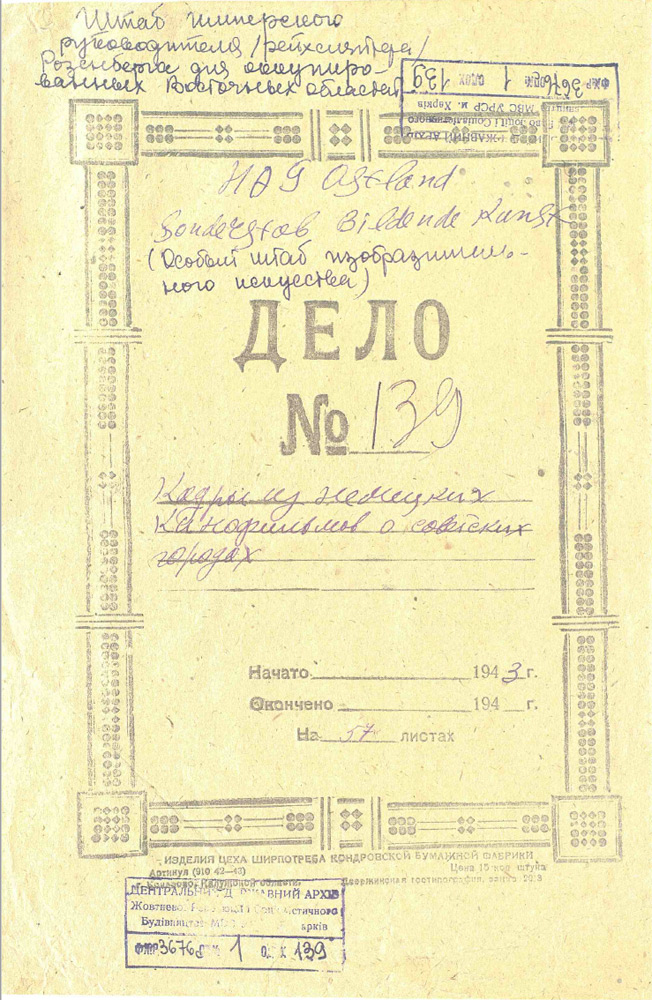 Штаб имперского
руководителя /рейхслейтера/
Розенберга для оккупиро-
ванных Восточных областей
ФНР 3676 опис 1 од.зх 139
МВС УРСР м. Харків
HAG Ostland
Sonderstab Bildende Kunst
(Особый штаб изобразитель-
ного искусства)
ДЕЛО
№ 139
Кадры из немецких
кинофильмов о советских
городах
Начато 1943 г.
Окончено 194 г.
На 57 листах
ИЗДЕЛИЯ ЦЕХА ШИРПОТРЕБА КОНДРОВСКОЙ БУМАЖНОЙ ФАБРИКИ
Артикул (910 42—43) Цена 15 коп штука
Калужской области. Дзержинская гостипография, заказ
ЦЕНТРАЛЬНИЙ ДЕРЖАВНИЙ АРХІВ
Жовтневої
Будівництва
ФНР 3676 1 139